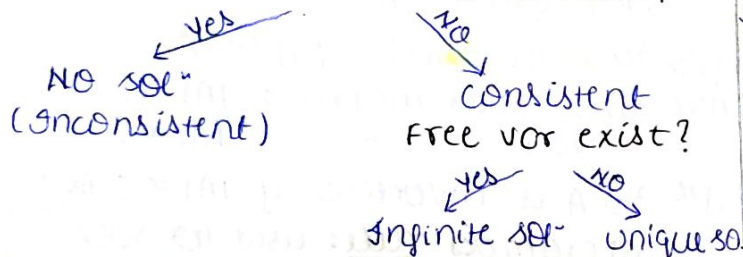 yes NO
NO solⁿ consistent
(Inconsistent) Free var exist?
yes NO
Infinite solⁿ unique so